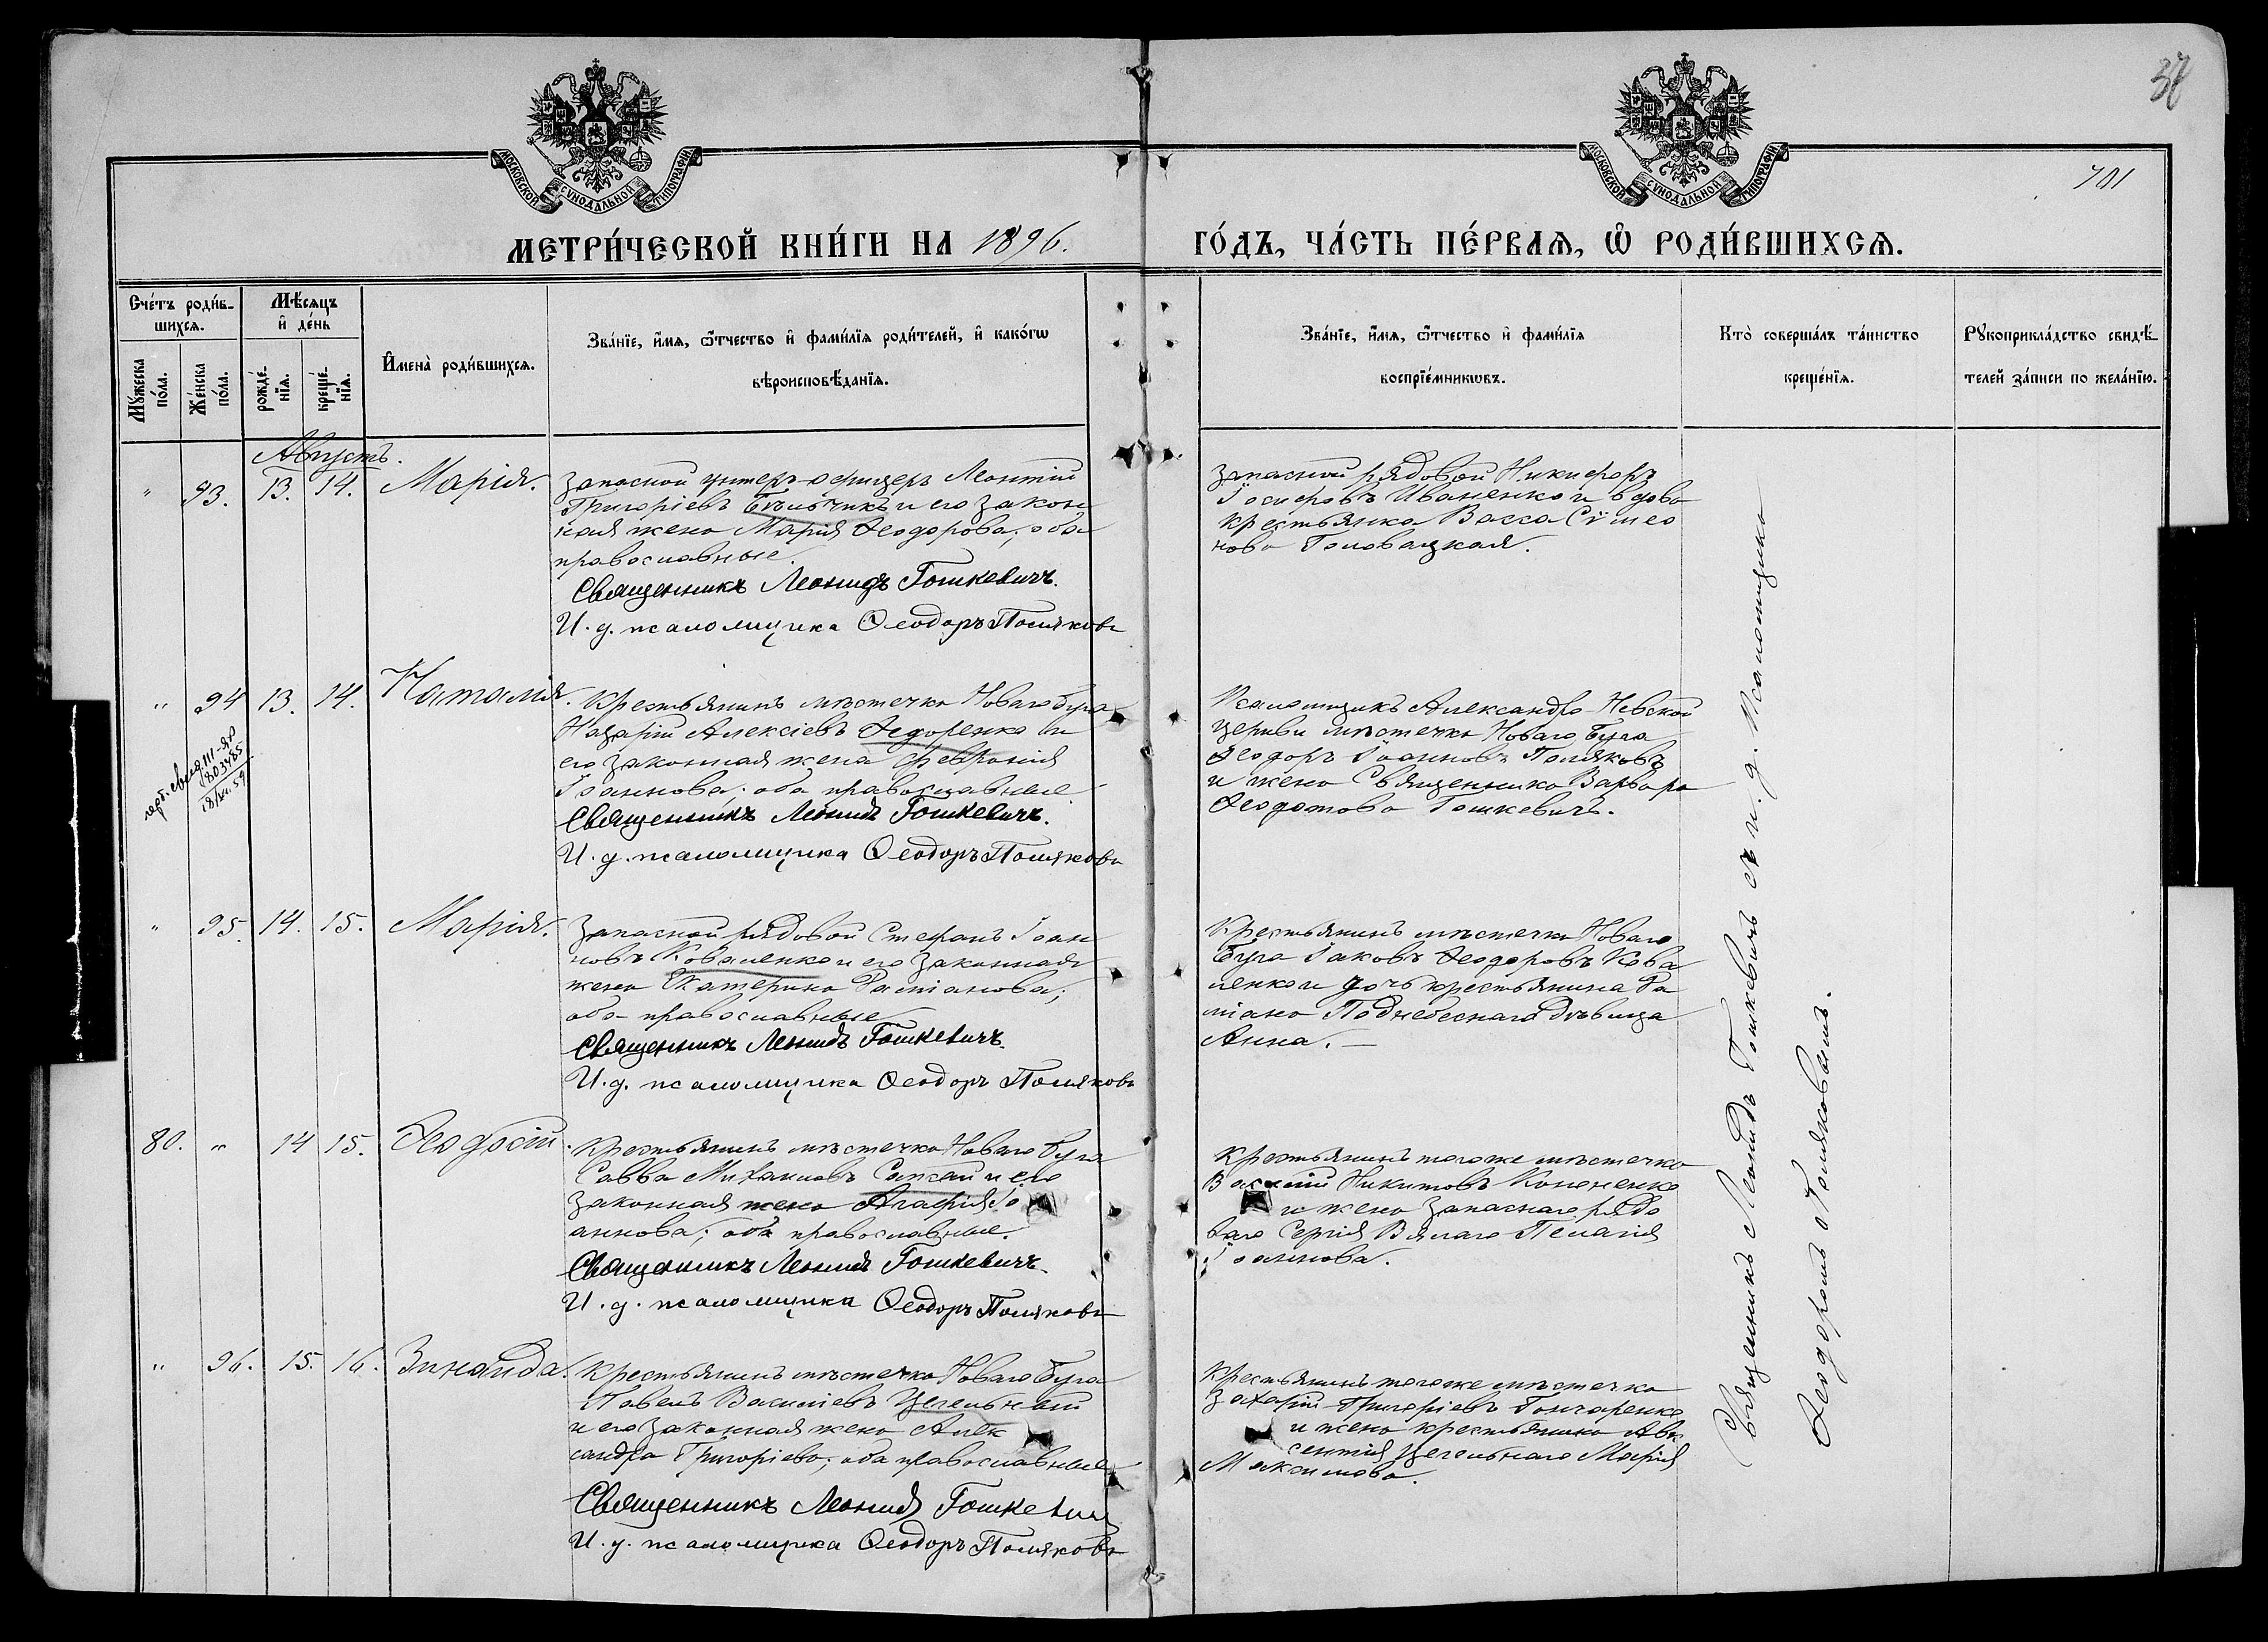 37
701
МОСКОВСКОЙ СѴНОДАЛЬНОЙ ТИПОГРАФІИ
МОСКОВСКОЙ СѴНОДАЛЬНОЙ ТИПОГРАФІИ
МЕТРИ́ЧЕСКОЙ КНИ́ГИ НА 1896. ГО́ДЪ, ЧА́СТЬ ПЕ́РВАѦ, Ѡ҆ РОДИ́ВШИХСѦ.
Сче́тъ роди́в-
шихсѧ.
Мѣ́сѧцъ
и҆ де́нь
Мꙋ́жеска
по́ла.
Же́нска
по́ла.
рожде́-
нїѧ.
креще́-
нїѧ.
И҆мена̀ роди́вшихсѧ.
Зва́нїе, и҆́мѧ, ѻ҆́тчество и҆ фами́лїѧ роди́телей, и҆ како́гѡ
вѣроисповѣ́данїѧ.
Зва́нїе, и҆́мѧ, ѻ҆́тчество и҆ фами́лїѧ
воспрїе́мникѡвъ.
Кто̀ соверша́лъ та́инство
креще́нїѧ.
Рꙋкоприкла́дство свидѣ́-
телей за́писи по жела́нїю.
Августъ.
" 93. 13. 14. Марія.
Запасной унтеръ-офицеръ Леонтій
Григоріевъ Бѣльчикъ и его закон
ная жена Марія Ѳеодорова; оба
православные.
Священникъ Леонидъ Гошкевичъ.
И. д. псаломщика Ѳеодоръ Поляковъ
Запасной рядовой Никифоръ
Іосифовъ Иваненко и вдова
крестьянка Васса Сѵмео
нова Головацкая.
" 94 13. 14. Наталія.
18/XII.59
Крестьянинъ мѣстечка Новаго Буга
Назарій Алексіевъ Ѳедоренко и
его законная жена Февронія
Іоаннова; оба православные.
Священникъ Леонидъ Гошкевичъ.
И. д. псаломщика Ѳеодоръ Поляковъ
Псаломщикъ Александро-Невской
церкви мѣстечка Новаго Буга
Ѳеодоръ Іоанновъ Поляковъ
и жена Священника Варвара
Ѳеодотова Гошкевичъ.
" 95. 14. 15. Марія.
Запасной рядовой Стефанъ Іоан
новъ Коваленко и его законная
жена Екатерина Даміанова;
оба православные
Священникъ Леонидъ Гошкевичъ.
И. д. псаломщика Ѳеодоръ Поляковъ
Крестьянинъ мѣстечка Новаго
Буга Іаковъ Ѳеодоровъ Кова
ленко и дочь крестьянина Да
міана Поднебеснаго дѣвица
Анна. —
80. " 14 15. Ѳеодосій.
Крестьянинъ мѣстечка Новаго Буга
Савва Михаиловъ и его
законная жена Агафія Іо
аннова; оба православные.
Священникъ Леонидъ Гошкевичъ.
И. д. псаломщика Ѳеодоръ Поляковъ
Крестьянинъ тогоже мѣстечка
Василій Никитовъ Кононенко
и жена запаснаго рядо
ваго Сергія Вялаго Пелагія
Іоаннова.
" 96. 15. 16. Зинаида.
Крестьянинъ мѣстечка Новаго Буга
Павелъ Василіевъ Цегельный
и его законная жена Алек
сандра Григоріева; оба православные
Священникъ Леонидъ Гошкевичъ
И. д. псаломщика Ѳеодоръ Поляковъ
Крестьянинъ тогоже мѣстечка
Захарій Григоріевъ Гончаренко
и жена крестьянина Авк
сентія Цегельнаго Марія
Максимова.
Священникъ Леонидъ Гошкевичъ съ и. д. Псаломщика
Ѳеодоромъ Поляковымъ.